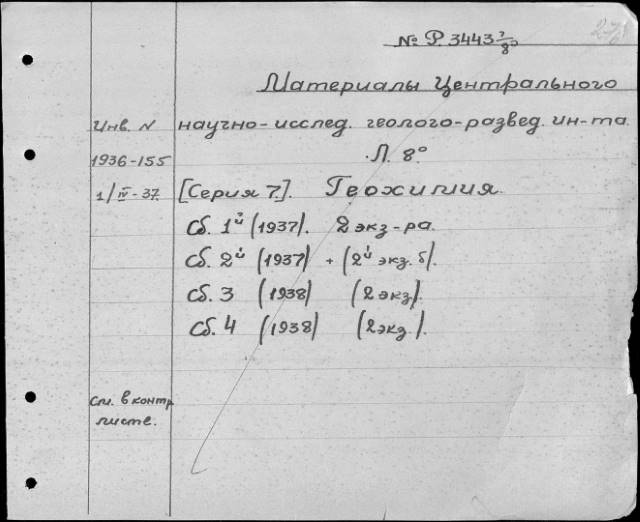 № Р. 3443 7/8°
Материалы Центрального
Инв. N научно-исслед. геолого-развед. ин-та.
1936-155 Л. 8°
1/IV-37 [Серия 7]. Геохимия.
Сб. 1й (1937). 2 экз-ра.
Сб. 2й (1937) + (2й экз. б).
Сб. 3 (1938) (2 экз).
Сб. 4 (1938) (2 экз.).
См. в контр.
листе.